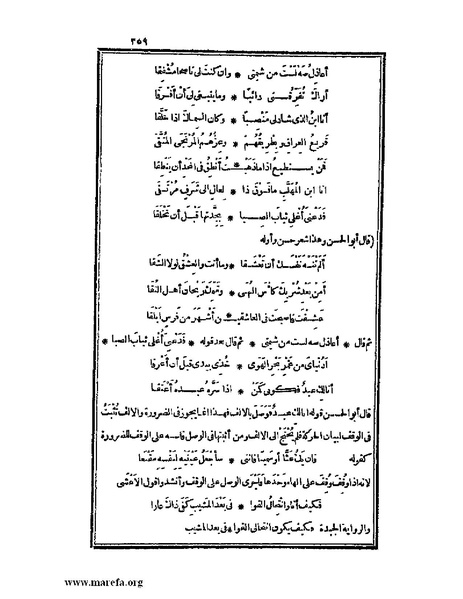 ٣٥٩
أعاذل صه لست من شيمتى * وان كنت لى ناصحا مشفقا
أراك تفرقنى دائبا * وما ينبغى لى أن أفرقا
أنا ابن الذى شاد لى منصبا * وكان السماك اذا حلقا
قريع العراق وبطريقهم * وعزهم المرتجى المتقى
فمن يستطيع اذا ما ذهبت أنطق فى المجد أن ينطقا
انا ابن المهلب ما فوق ذا * لعال الى شرف مرتقى
فدعنى أغلى ثياب الصبا * بجدتها قبل أن تخلقا
(قال أبو الحسن وهذا شعر حسن وأوله
ألم تنه نفسك أن تعشقا * وما أنت والعشق لولا الشقا
أمن بعد شربك كأس النهى * وشمك ريحان أهل النقا
عشقت فأصبحت فى العاشقين * أشهر من فرس أبلقا
ثم قال * أعاذل صه لست من شيمتى * ثم قال بعد قوله * فدعنى أغلى ثياب الصبا *
أدنياى من غمر بحر الهوى * خذى بيدى قبل أن أغرقا
أنا لك عبد فكونى كمن * اذا سره عبده أعتقا
قال أبو الحسن قوله انا لك عبد فوصل بالالف فهذا انما يجوز فى الضرورة والالف تثبت
فى الوقف لبيان الحركة فلم يحتج الى الالف ومن أثبتها فى الوصل قاسه على الوقف للضرورة
كقوله فان يك غثا أو سمينا فاننى * سأجعل عينيه لنفسه مقنعا
لانه اذا وقف وقف على الهاء وحدها فأجرى الوصل على الوقف وأنشدوا قول الاعشى
فكيف أنا وانتحال القوا * فى بعد المشيب كفى ذاك عارا
والرواية الجيدة * فكيف يكون انتحالى القوافى بعد المشيب
www.marefa.org